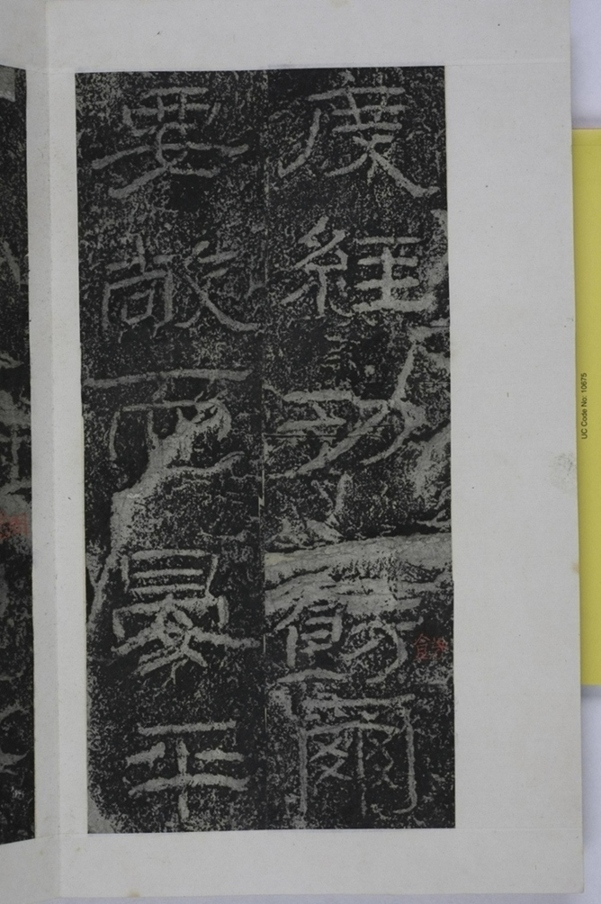 度經功飭爾
飭
要敞而晏平
UC Code No: 10675